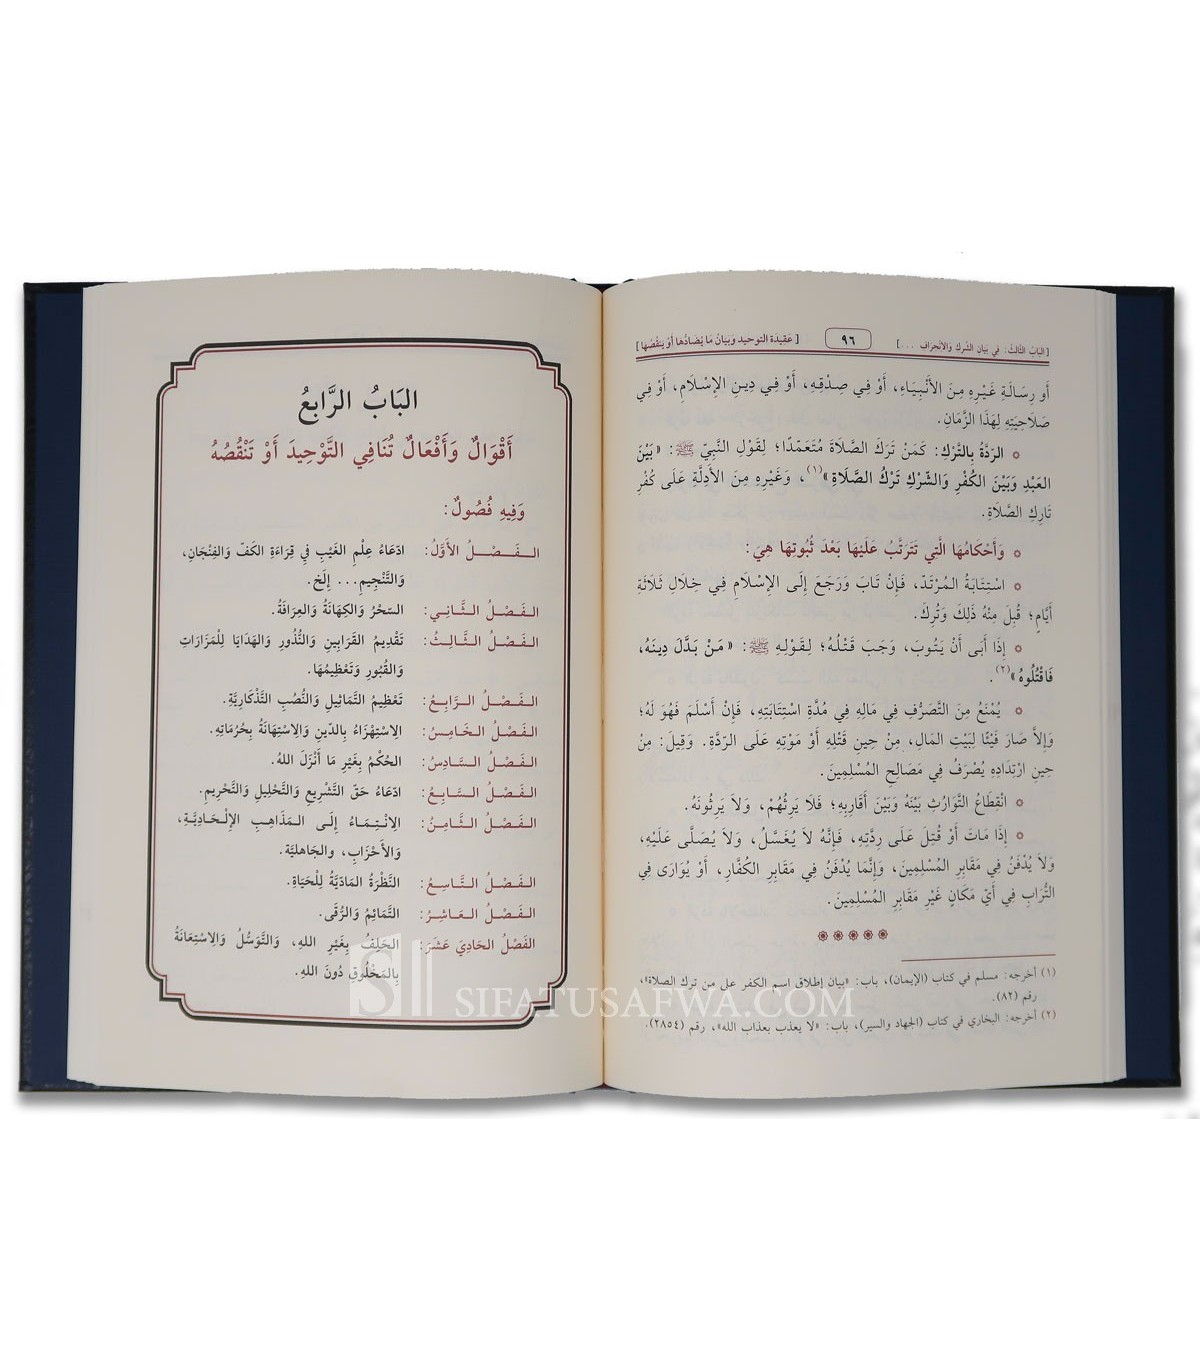 [البَاب الثَّالث: في بَيان الشِّرك وَالانْحِرَاف ...]
٩٦
[عَقِيدَة التوحيد وَبَيانُ مَا يُضَادُّهَا أَوْ يَنقُصُهَا]
أَو رِسَالَةِ غَيْرِهِ مِنَ الأَنْبِيَاءِ، أَوْ فِي صِدْقِهِ، أَوْ فِي دِينِ الإِسْلَامِ، أَوْ فِي
صَلَاحِيَتِهِ لِهَذَا الزَّمَانِ.
الرِّدَّةُ بِالتَّرْكِ: كَمَنْ تَرَكَ الصَّلَاةَ مُتَعَمِّدًا؛ لِقَوْلِ النَّبِيِّ ﷺ: «بَيْنَ
العَبْدِ وَبَيْنَ الكُفْرِ وَالشِّرْكِ تَرْكُ الصَّلَاةِ»(١)، وَغَيْرِهِ مِنَ الأَدِلَّةِ عَلَى كُفْرِ
تَارِكِ الصَّلَاةِ.
وَأَحْكَامُهَا الَّتِي تَتَرَتَّبُ عَلَيْهَا بَعْدَ ثُبُوتِهَا هِيَ:
اسْتِتَابَةُ المُرْتَدِّ، فَإِنْ تَابَ وَرَجَعَ إِلَى الإِسْلَامِ فِي خِلَالِ ثَلَاثَةِ
أَيَّامٍ؛ قُبِلَ مِنْهُ ذَلِكَ وَتُرِكَ.
إِذَا أَبَى أَنْ يَتُوبَ، وَجَبَ قَتْلُهُ؛ لِقَوْلِهِ ﷺ: «مَنْ بَدَّلَ دِينَهُ،
فَاقْتُلُوهُ»(٢).
يُمْنَعُ مِنَ التَّصَرُّفِ فِي مَالِهِ فِي مُدَّةِ اسْتِتَابَتِهِ، فَإِنْ أَسْلَمَ فَهُوَ لَهُ؛
وَإِلاَّ صَارَ فَيْئًا لِبَيْتِ المَالِ، مِنْ حِينِ قَتْلِهِ أَوْ مَوْتِهِ عَلَى الرِّدَّةِ. وَقِيلَ: مِنْ
حِينِ ارْتِدَادِهِ يُصْرَفُ فِي مَصَالِحِ المُسْلِمِينَ.
انْقِطَاعُ التَّوَارُثِ بَيْنَهُ وَبَيْنَ أَقَارِبِهِ؛ فَلَا يَرِثُهُمْ، وَلاَ يَرِثُونَهُ.
إِذَا مَاتَ أَوْ قُتِلَ عَلَى رِدَّتِهِ، فَإِنَّهُ لَا يُغَسَّلُ، وَلاَ يُصَلَّى عَلَيْهِ،
وَلاَ يُدْفَنُ فِي مَقَابِرِ المُسْلِمِينَ، وَإِنَّمَا يُدْفَنُ فِي مَقَابِرِ الكُفَّارِ، أَوْ يُوَارَى فِي
التُّرَابِ فِي أَيِّ مَكَانٍ غَيْرِ مَقَابِرِ المُسْلِمِينَ.
(١) أخرجه: مسلم في كتاب (الإيمان)، باب: «بيان إطلاق اسم الكفر على من ترك الصلاة»،
رقم (٨٢).
(٢) أخرجه: البخاري في كتاب (الجهاد والسير)، باب: «لا يعذب بعذاب الله»، رقم (٢٨٥٤).
البَابُ الرَّابِعُ
أَقْوَالٌ وَأَفْعَالٌ تُنَافِي التَّوْحِيدَ أَوْ تَنْقُصُهُ
وَفِيهِ فُصُولٌ:
الفَصْلُ الأَوَّلُ: ادِّعَاءُ عِلْمِ الغَيْبِ فِي قِرَاءَةِ الكَفِّ وَالفِنْجَانِ،
وَالتَّنْجِيمِ... إِلَخ.
الفَصْلُ الثَّانِي: السِّحْرُ وَالكِهَانَةُ وَالعِرَافَةُ.
الفَصْلُ الثَّالِثُ: تَقْدِيمُ القَرَابِينِ وَالنُّذُورِ وَالهَدَايَا لِلْمَزَارَاتِ
وَالقُبُورِ وَتَعْظِيمُهَا.
الفَصْلُ الرَّابِعُ: تَعْظِيمُ التَّمَاثِيلِ وَالنُّصُبِ التِّذْكَارِيَّةِ.
الفَصْلُ الخَامِسُ: الاِسْتِهْزَاءُ بِالدِّينِ وَالاِسْتِهَانَةُ بِحُرُمَاتِهِ.
الفَصْلُ السَّادِسُ: الحُكْمُ بِغَيْرِ مَا أَنْزَلَ اللهُ.
الفَصْلُ السَّابِعُ: ادِّعَاءُ حَقِّ التَّشْرِيعِ وَالتَّحْلِيلِ وَالتَّحْرِيمِ.
الفَصْلُ الثَّامِنُ: الاِنْتِمَاءُ إِلَى المَذَاهِبِ الإِلْحَادِيَّةِ،
وَالأَحْزَابِ، والجَاهليَّة.
الفَصْلُ التَّاسِعُ: النَّظْرَةُ المَادِّيَّةُ لِلْحَيَاةِ.
الفَصْلُ العَاشِرُ: التَّمَائِمُ وَالرُّقَى.
الفَصْلُ الحَادِيَ عَشَرَ: الحَلِفُ بِغَيْرِ اللهِ، وَالتَّوَسُّلُ وَالاِسْتِعَانَةُ
بِالمَخْلُوقِ دُونَ اللهِ.
SIFATUSAFWA.COM